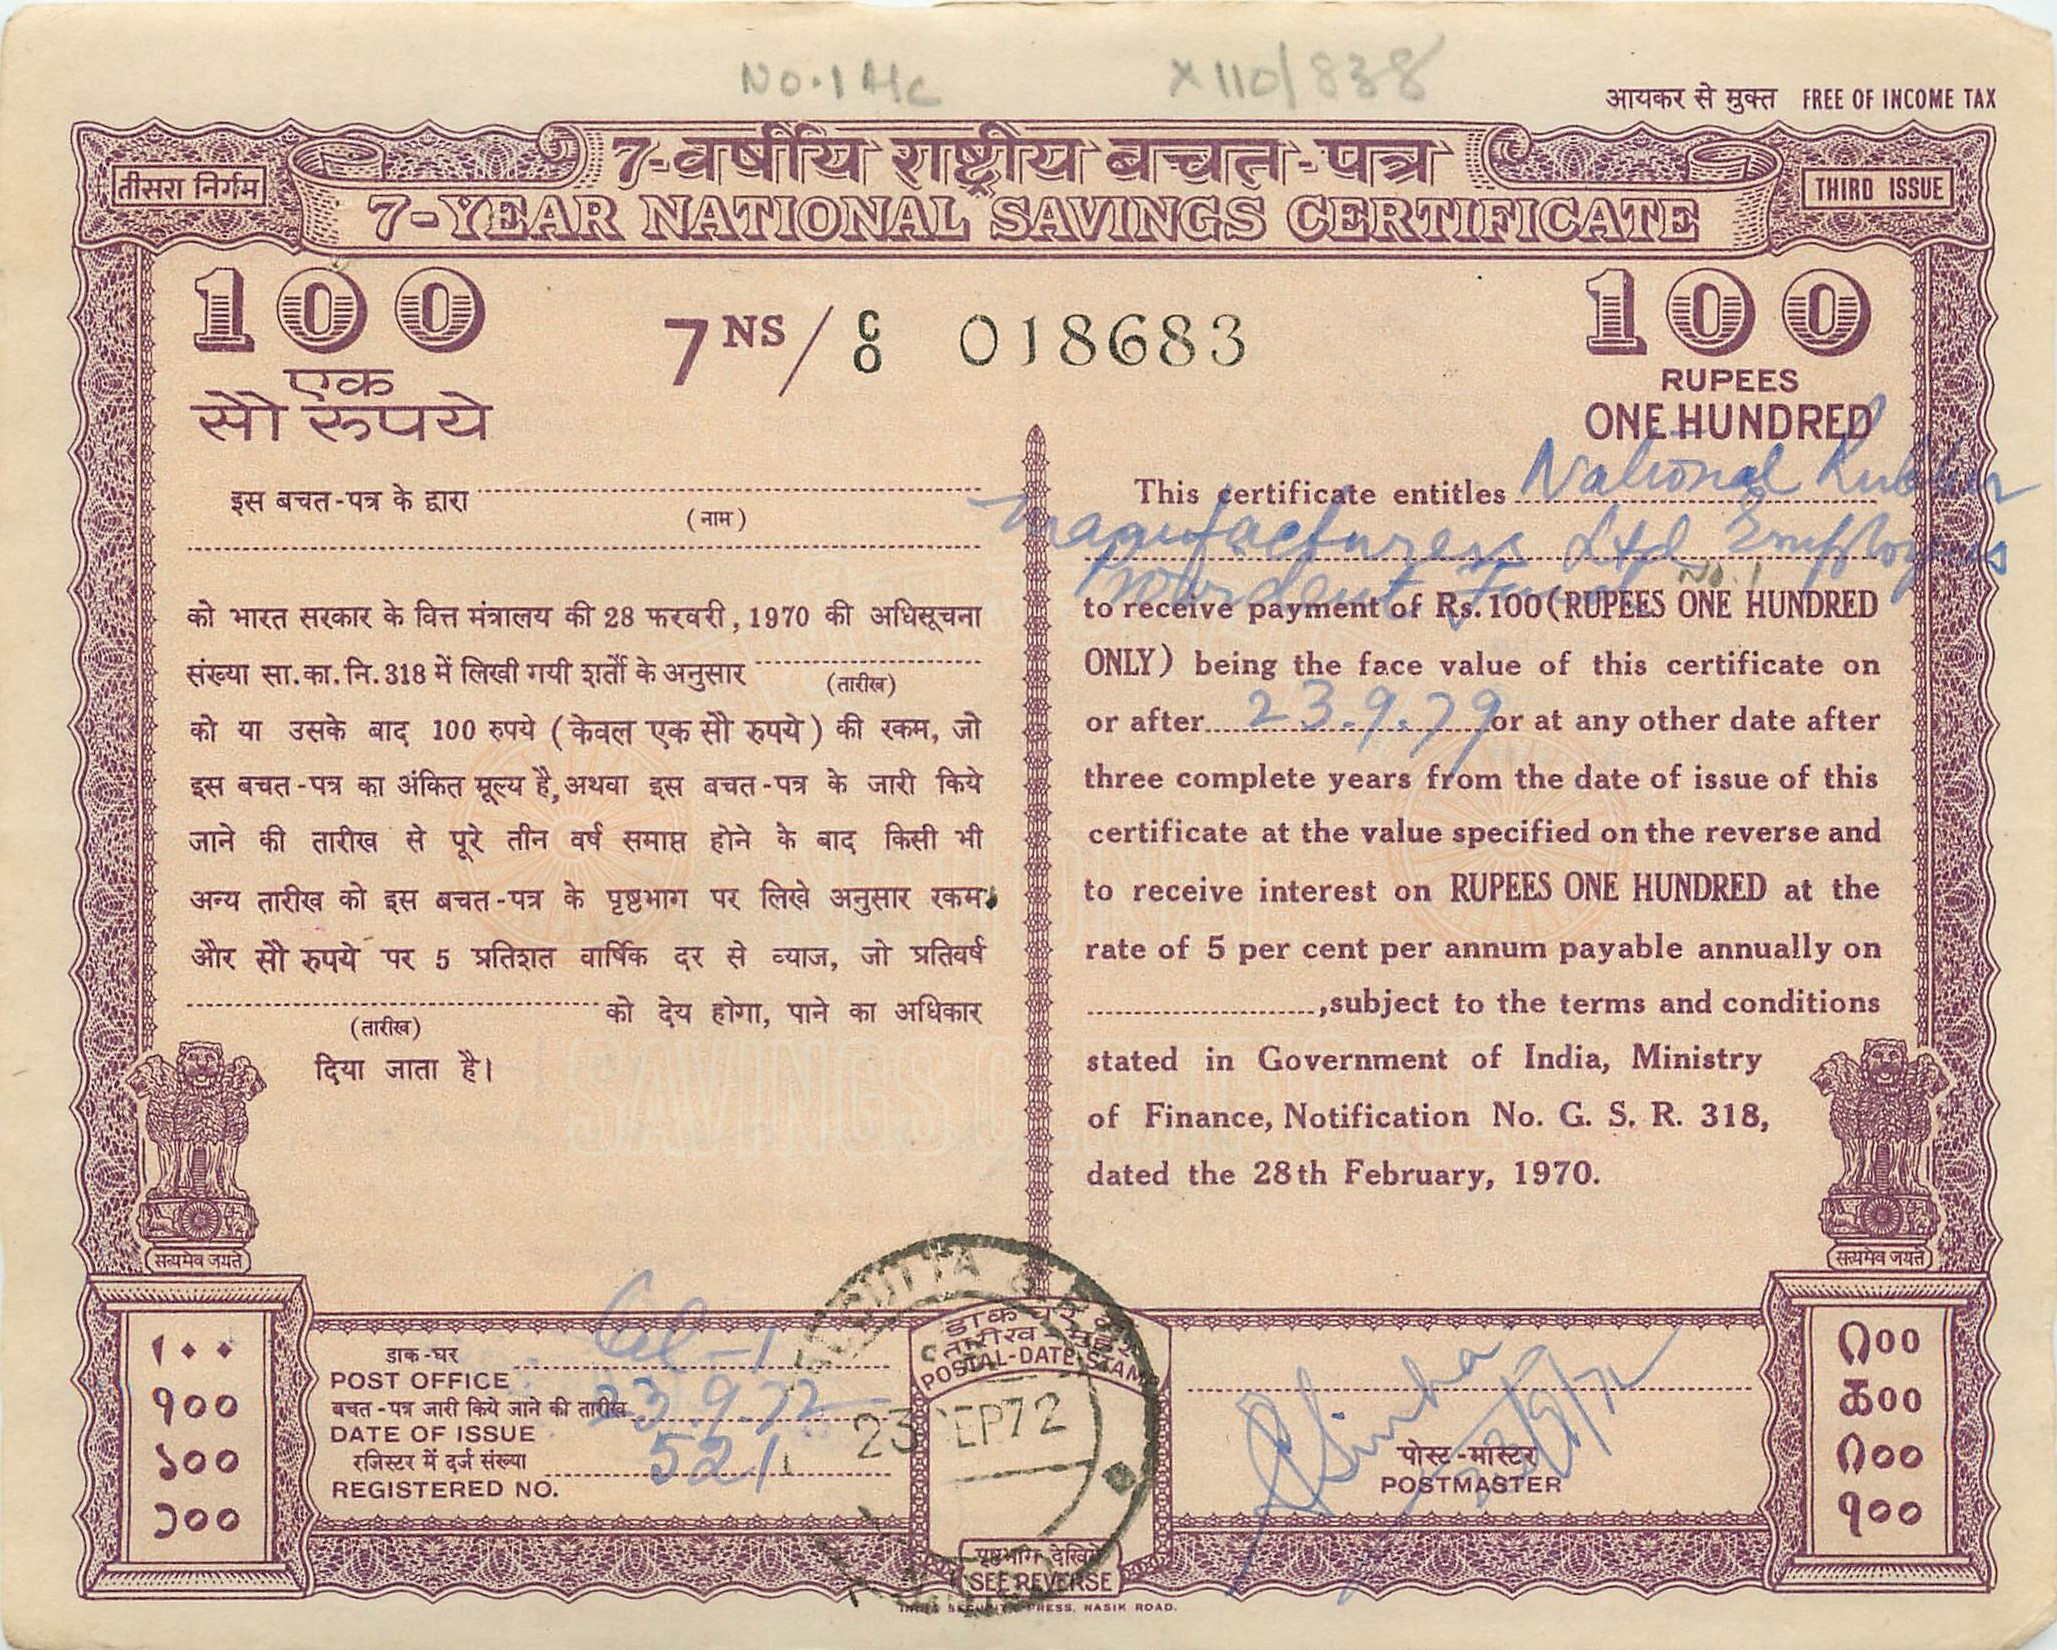 No. 1 A/c X110/838
आयकर से मुक्त FREE OF INCOME TAX
7-वर्षीय राष्ट्रीय बचत-पत्र
तीसरा निर्गम
THIRD ISSUE
7-YEAR NATIONAL SAVINGS CERTIFICATE
100
एक
सौ रुपये
7 NS / C/0 018683
100
RUPEES
ONE HUNDRED
इस बचत-पत्र के द्वारा
(नाम)
को भारत सरकार के वित्त मंत्रालय की 28 फरवरी, 1970 की अधिसूचना
संख्या सा.का.नि. 318 में लिखी गयी शर्तों के अनुसार
(तारीख)
को या उसके बाद 100 रुपये (केवल एक सौ रुपये) की रकम, जो
इस बचत-पत्र का अंकित मूल्य है, अथवा इस बचत-पत्र के जारी किये
जाने की तारीख से पूरे तीन वर्ष समाप्त होने के बाद किसी भी
अन्य तारीख को इस बचत-पत्र के पृष्ठभाग पर लिखे अनुसार रकम,
और सौ रुपये पर 5 प्रतिशत वार्षिक दर से ब्याज, जो प्रतिवर्ष
को देय होगा, पाने का अधिकार
(तारीख)
दिया जाता है।
This certificate entitles National Rubber
Manufacturers Ltd Employees
Provident Fund No. 1
to receive payment of Rs. 100 (RUPEES ONE HUNDRED
ONLY) being the face value of this certificate on
or after 23.9.79 or at any other date after
three complete years from the date of issue of this
certificate at the value specified on the reverse and
to receive interest on RUPEES ONE HUNDRED at the
rate of 5 per cent per annum payable annually on
, subject to the terms and conditions
stated in Government of India, Ministry
of Finance, Notification No. G. S. R. 318,
dated the 28th February, 1970.
सत्यमेव जयते
सत्यमेव जयते
१००
੧੦੦
১০০
૧૦૦
डाक-घर
POST OFFICE Cal-1
बचत-पत्र जारी किये जाने की तारीख
DATE OF ISSUE 23.9.72
रजिस्टर में दर्ज संख्या
REGISTERED NO. 521
CALCUTTA G.P.O.
23 SEP 72
डाक घर की
तारीख-मुहर
POSTAL-DATE STAMP
पृष्ठभाग देखिये
SEE REVERSE
Sinha
23/9/72
पोस्ट-मास्टर
POSTMASTER
INDIA SECURITY PRESS, NASIK ROAD.